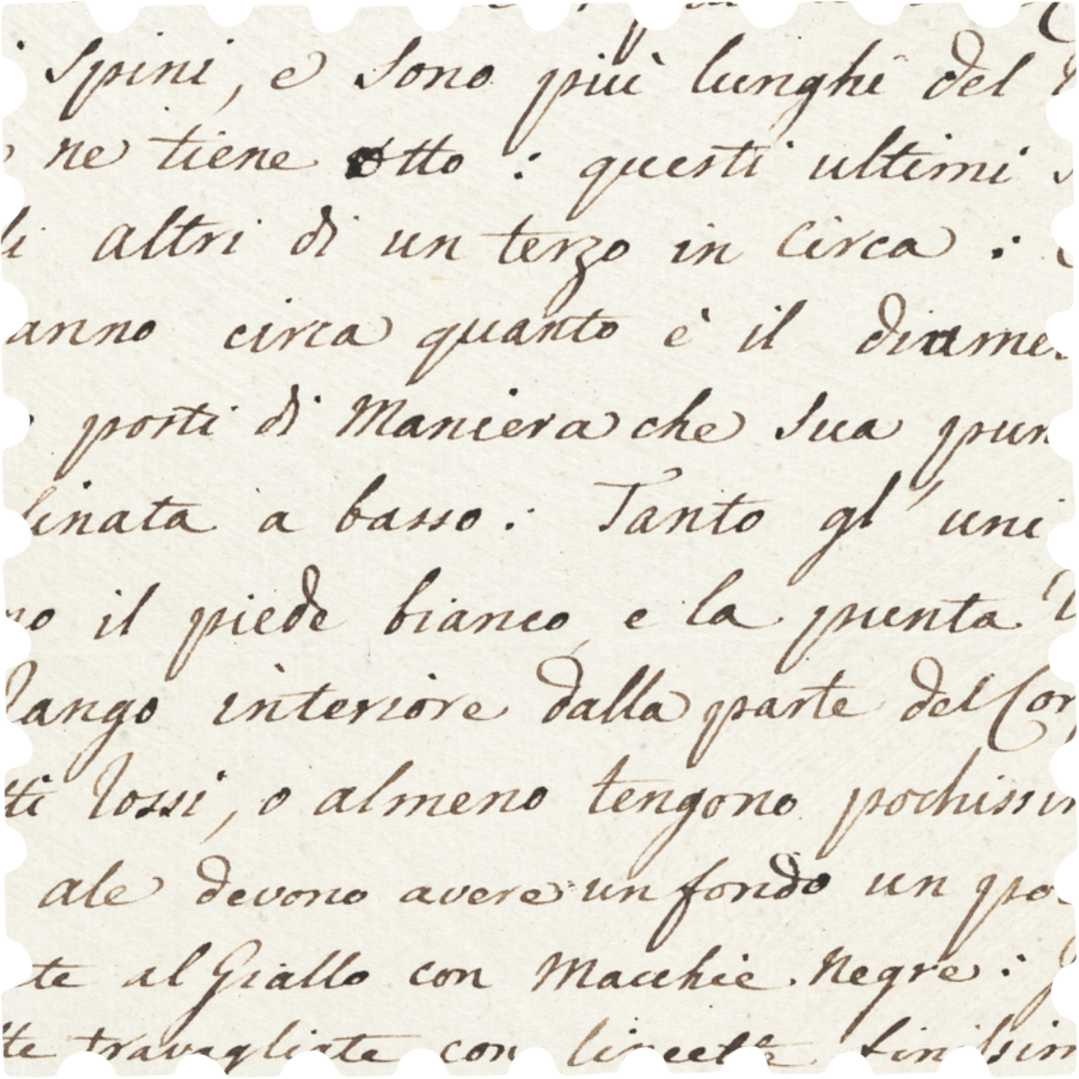 Spini, e sono più lunghi del
ne tiene otto : questi ultimi
altri di un terzo in circa :
anno circa quanto è il diame
posti di Maniera che sua pun
linata a basso : Tanto gl' uni
no il piede bianco, e la punta
Rango interiore dalla parte del Cor
tti Rossi, o almeno tengono pochissi
ale devono avere un fondo un po
te al Giallo con Macchie Negre :
tte travagliate con